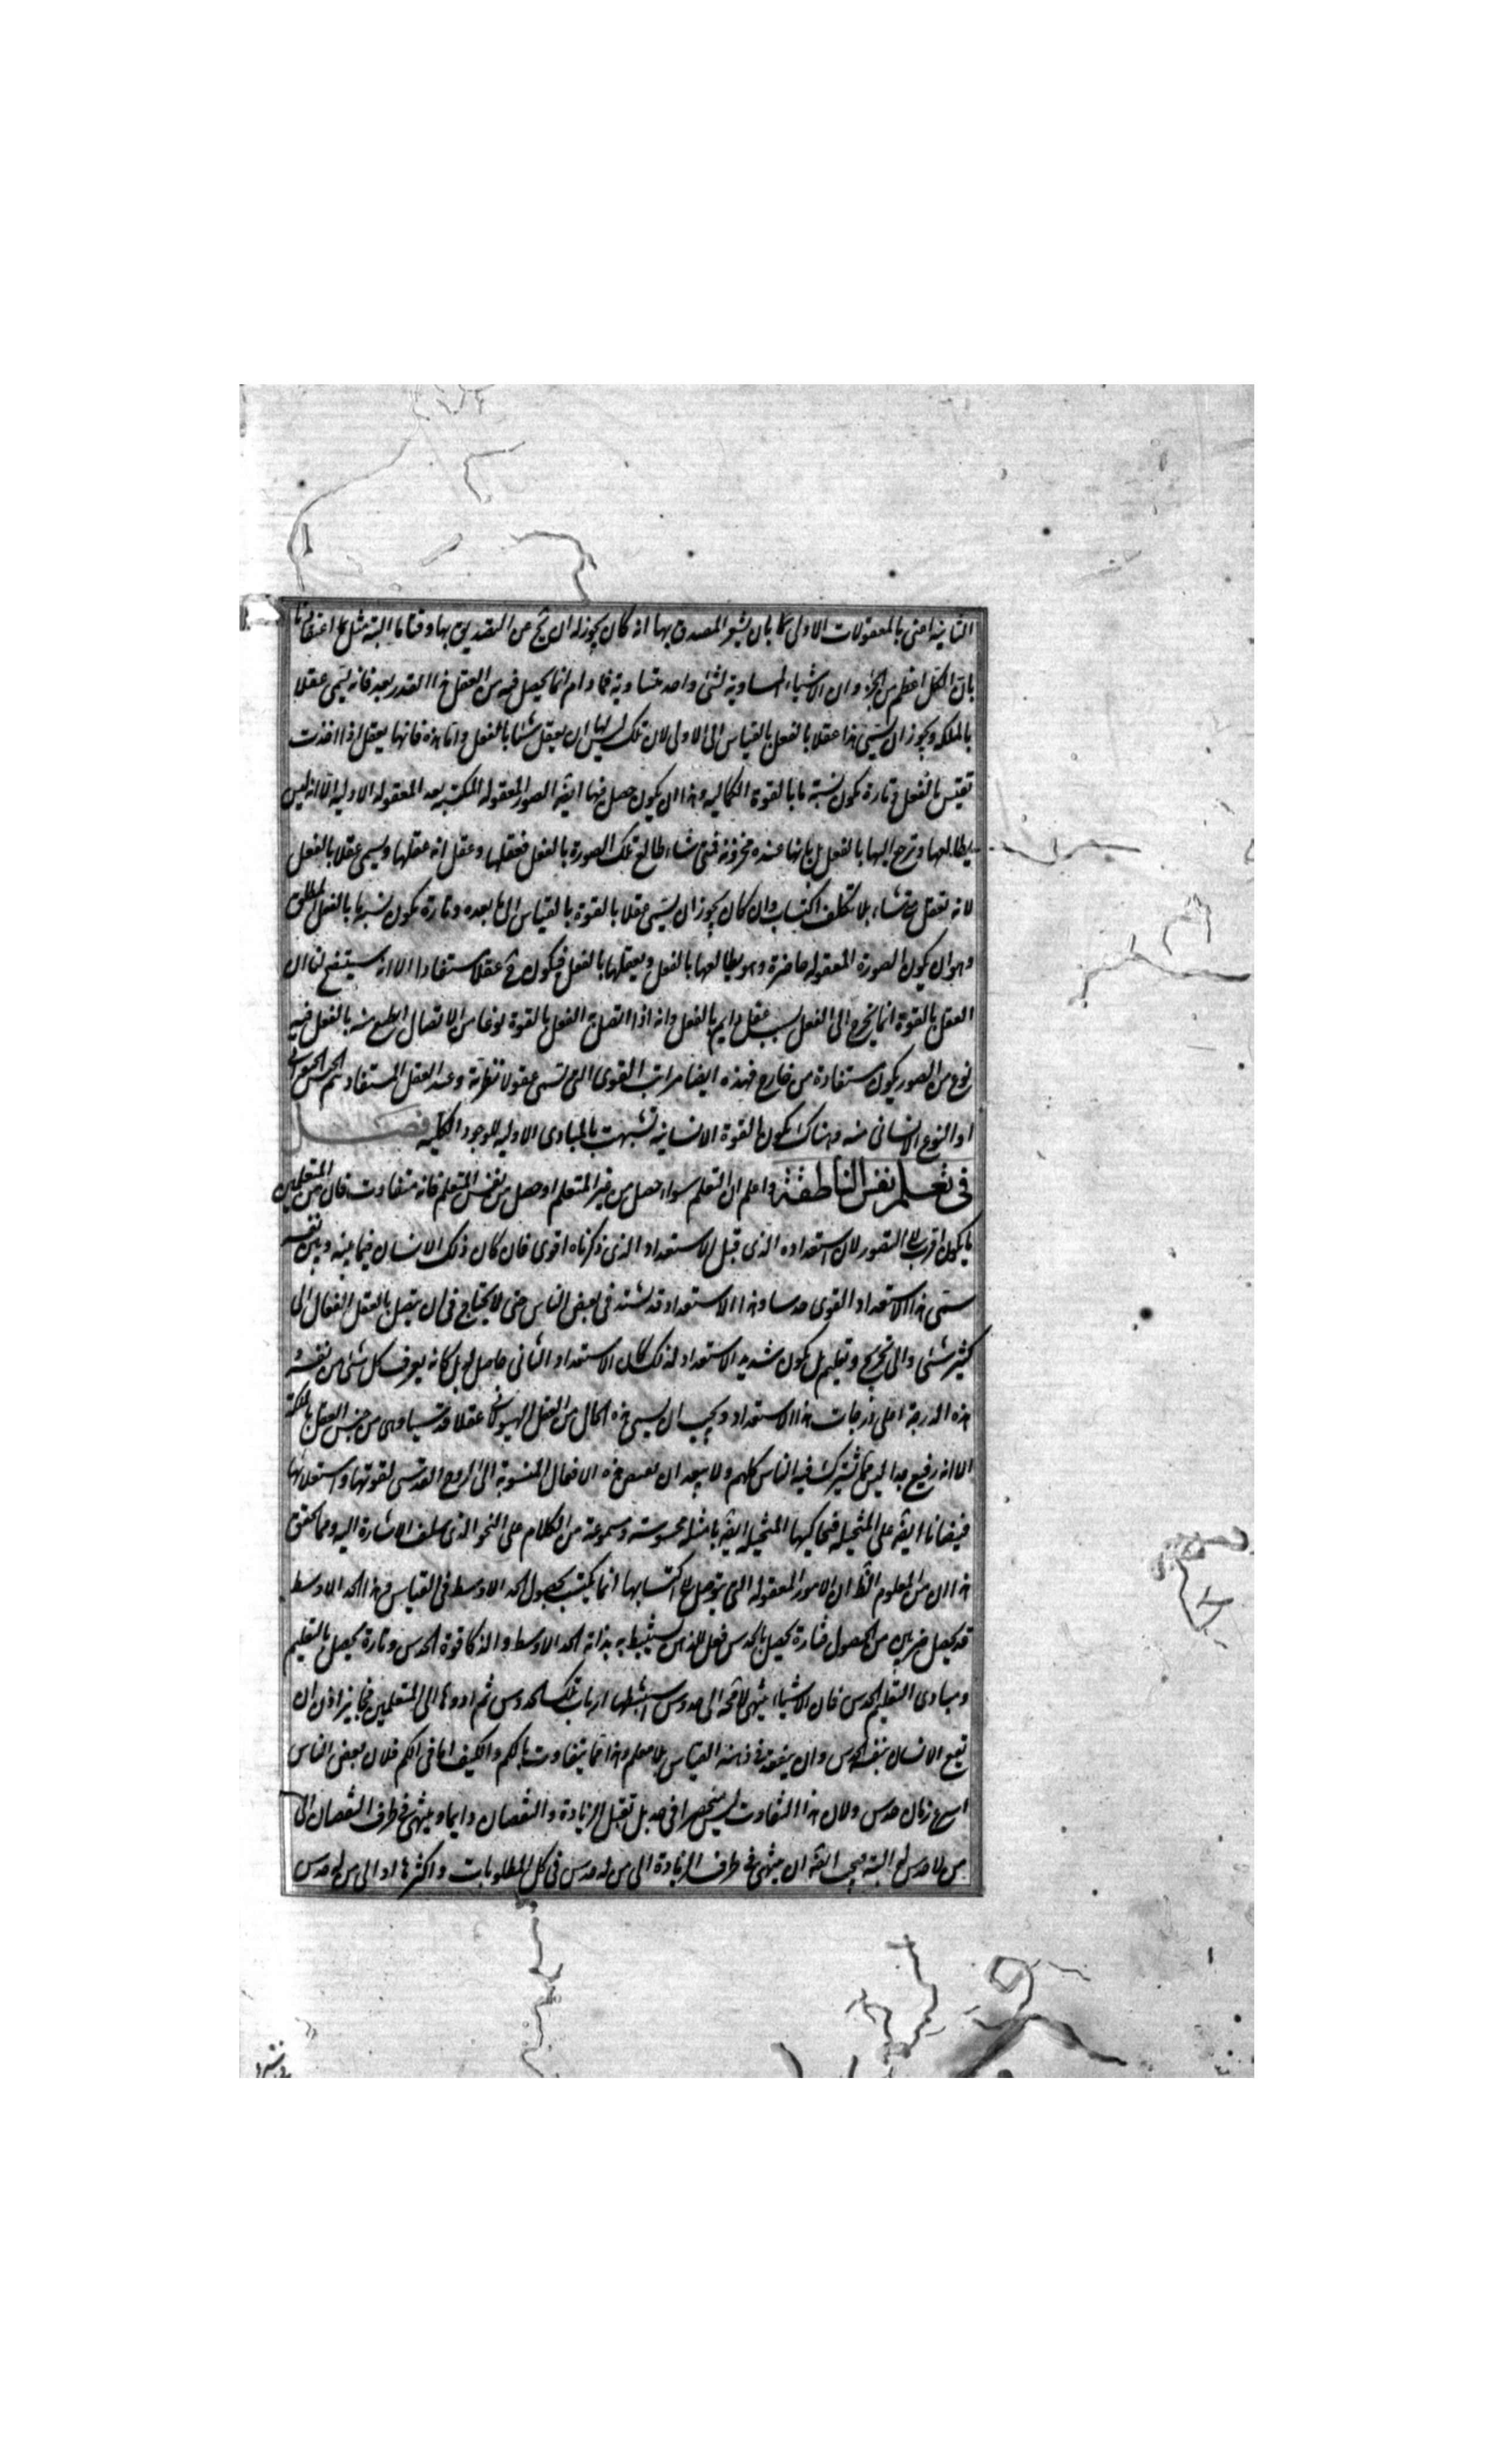 الثانية اعنى بالمعقولات الاولى لا بان يشعر المصدق بها انه كان يجوز له ان يخ عن التصديق بها وقتا ما البتة مثل اعتقادنا
بان الكل اعظم من الجزء وان الاشياء المساوية لشئ واحد متساوية فما دام انما يحصل فيه من العقل هذا القدر بعد فانه يسمى عقلا
بالملكه ويجوز ان يسمى هذا عقلا بالفعل بالقياس الى الاولى لان تلك ليس لها ان يعقل شيئا بالفعل واما هذه فانها يعقل اذا اخذت
تقيس بالفعل وتارة يكون نسبة ما بالقوة الكماليه وهذا ان يكون حصل فيها ايضه الصور المعقوله المكتسبه بعد المعقوله الاوليه الا انه ليس
يطالعها ويرجع اليها بالفعل بل كانها عنده مخزونه فمتى شاء طالع تلك الصورة بالفعل فعقلها وعقل انه عقلها ويسمى عقلا بالفعل
لانه تعقل متى شاء بلا تكلف اكتساب وان كان يجوز ان يسمى عقلا بالقوة بالقياس الى ما بعده وتارة يكون نسبة ما بالفعل المطلق
وهو ان يكون الصورة المعقوله حاضرة وهو يطالعها بالفعل ويعقلها بالفعل فيكون ح عقلا مستفادا الا انه سيتضح لنا ان
العقل بالقوة انما يخرج الى الفعل بسبب عقل دايم بالفعل وانه اذا اتصل العقل بالقوة نوعا من الاتصال انطبع منه بالفعل فيه
نوع من الصور يكون مستفادة من خارج فهذه ايضا مراتب القوى التى تسمى عقولا نظرية وعند العقل المستفاد تم الجنس الحيوانى
او النوع الانسانى منه وهناك يكون القوة الانسانيه تشبهت بالمبادى الاوليه للوجود الكليه فصل
فى تعلم نفس الناطقة واعلم ان التعلم سواء حصل من غير المتعلم او حصل من نفس المتعلم فانه متفاوت فان من المتعلمين
ما يكون اقرب الى التصور لان استعداده الذى قبل الاستعداد الذى ذكرناه اقوى فان كان ذلك الانسان فيما بينه وبين نفسه
سمى هذا الاستعداد القوى حدسا وهذا الاستعداد قد يشتد فى بعض الناس حتى لا يحتاج فى ان يتصل بالعقل الفعال الى
كثير شئى والى تخريج وتعليم بل يكون شديد الاستعداد لذلك كان الاستعداد الثانى حاصل له بل كانه يعرف كل شئى من نفسه و
هذه الدرجة اعلى درجات هذا الاستعداد ويجب ان يسمى هذه الحال من العقل الهيولانى عقلا قدسيا وهى من جنس العقل بالملكة
الا انه رفيع جدا ليس مما يشترك فيه الناس كلهم ولا يبعد ان بعض هذه الافعال المنسوبة الى الروح القدسى لقوتها واستعلائها
فيضانا ايضه على المتخيله فتحاكيها المتخيله ايضه بامثله محسوسة ومسموعة من الكلام على النحو الذى سلف الاشارة اليه ومما يحقق
هذا ان من المعلوم الظ ان الامور المعقوله التى يتوصل الى اكتسابها انما يكتسب بحصول الحد الاوسط فى القياس وهذا الحد الاوسط
قد يحصل ضربين من الحصول فتارة يحصل بالحدس فعل للذهن يستنبط به بذاته الحد الاوسط والذكا قوة الحدس وتارة يحصل بالتعليم
ومبادى التعليم الحدس فان الاشياء ينتهى لا محه الى حدوس استنبطها ارباب تلك الحدوس ثم ادوها الى المتعلمين فجايز اذن ان
تقع الانسان بنفسه الحدس وان ينعقد فى ذهنه القياس بلا معلم وهذا مما يتفاوت بالكم والكيف اما فى الكم فلان بعض الناس
اسرع زمان حدس ولان هذا التفاوت ليس منحصرا فى حد بل تقبل الزيادة والنقصان دايما وينتهى فى طرف النقصان الى
من لا حدس له البتة فيجب ايضه ان ينتهى فى طرف الزيادة الى من له حدس فى كل المطلوبات واكثرها او الى من له حدس